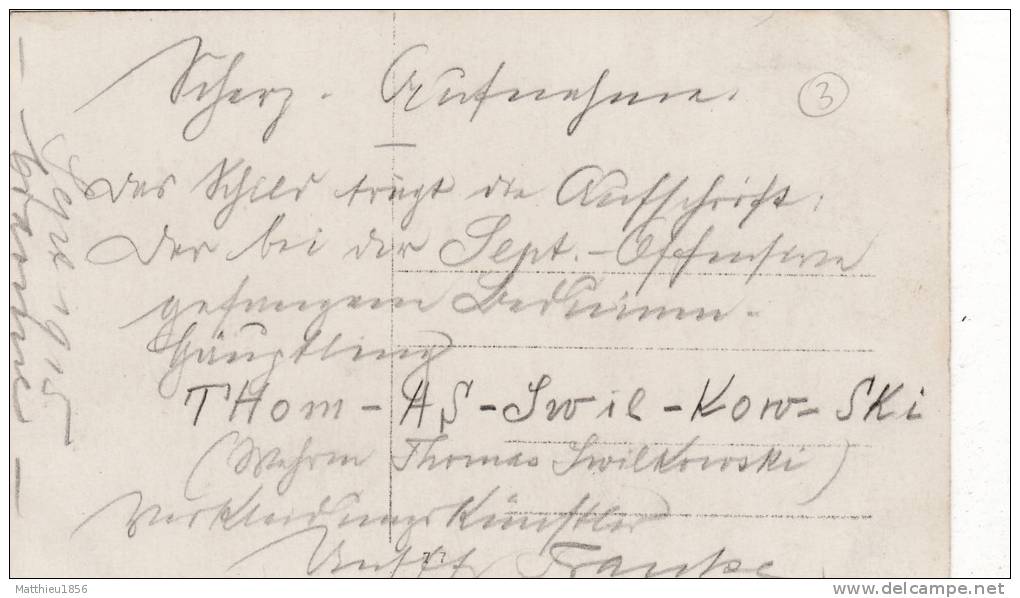 Scherz - Aufnahme.
3
Das Schild trägt die Aufschrift:
Der bei der Sept. - Offensive
gefangene Beduinen-
Häuptling
THom - AS - Swil - Kow - SKi
(Wehrm Thomas Swilkowski)
Verkleidungskünstler
Uffz Franke
1915
Matthieu1856
www.delcampe.net